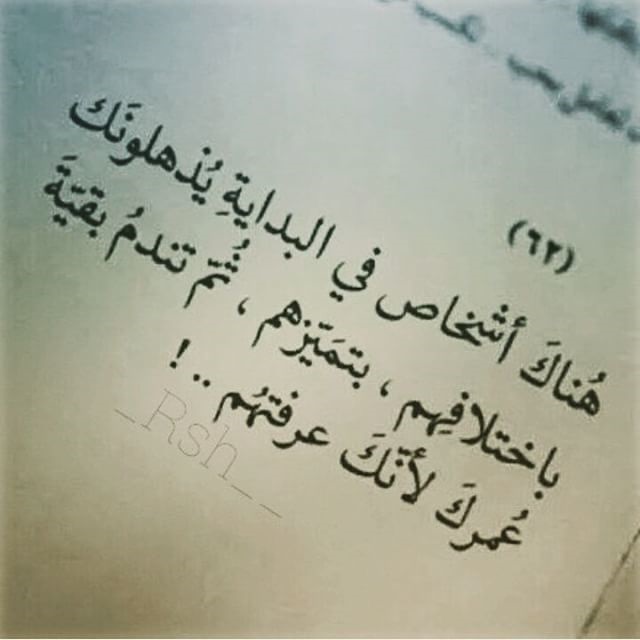 (٦٢)
هُناكَ أشخاص في البدايةِ يُذهلونَك
باختلافِهم ، بتمَيّزهم ، ثُمّ تندمُ بقيّةَ
عُمركَ لأنّكَ عرفتهُم .. !
_Rsh__